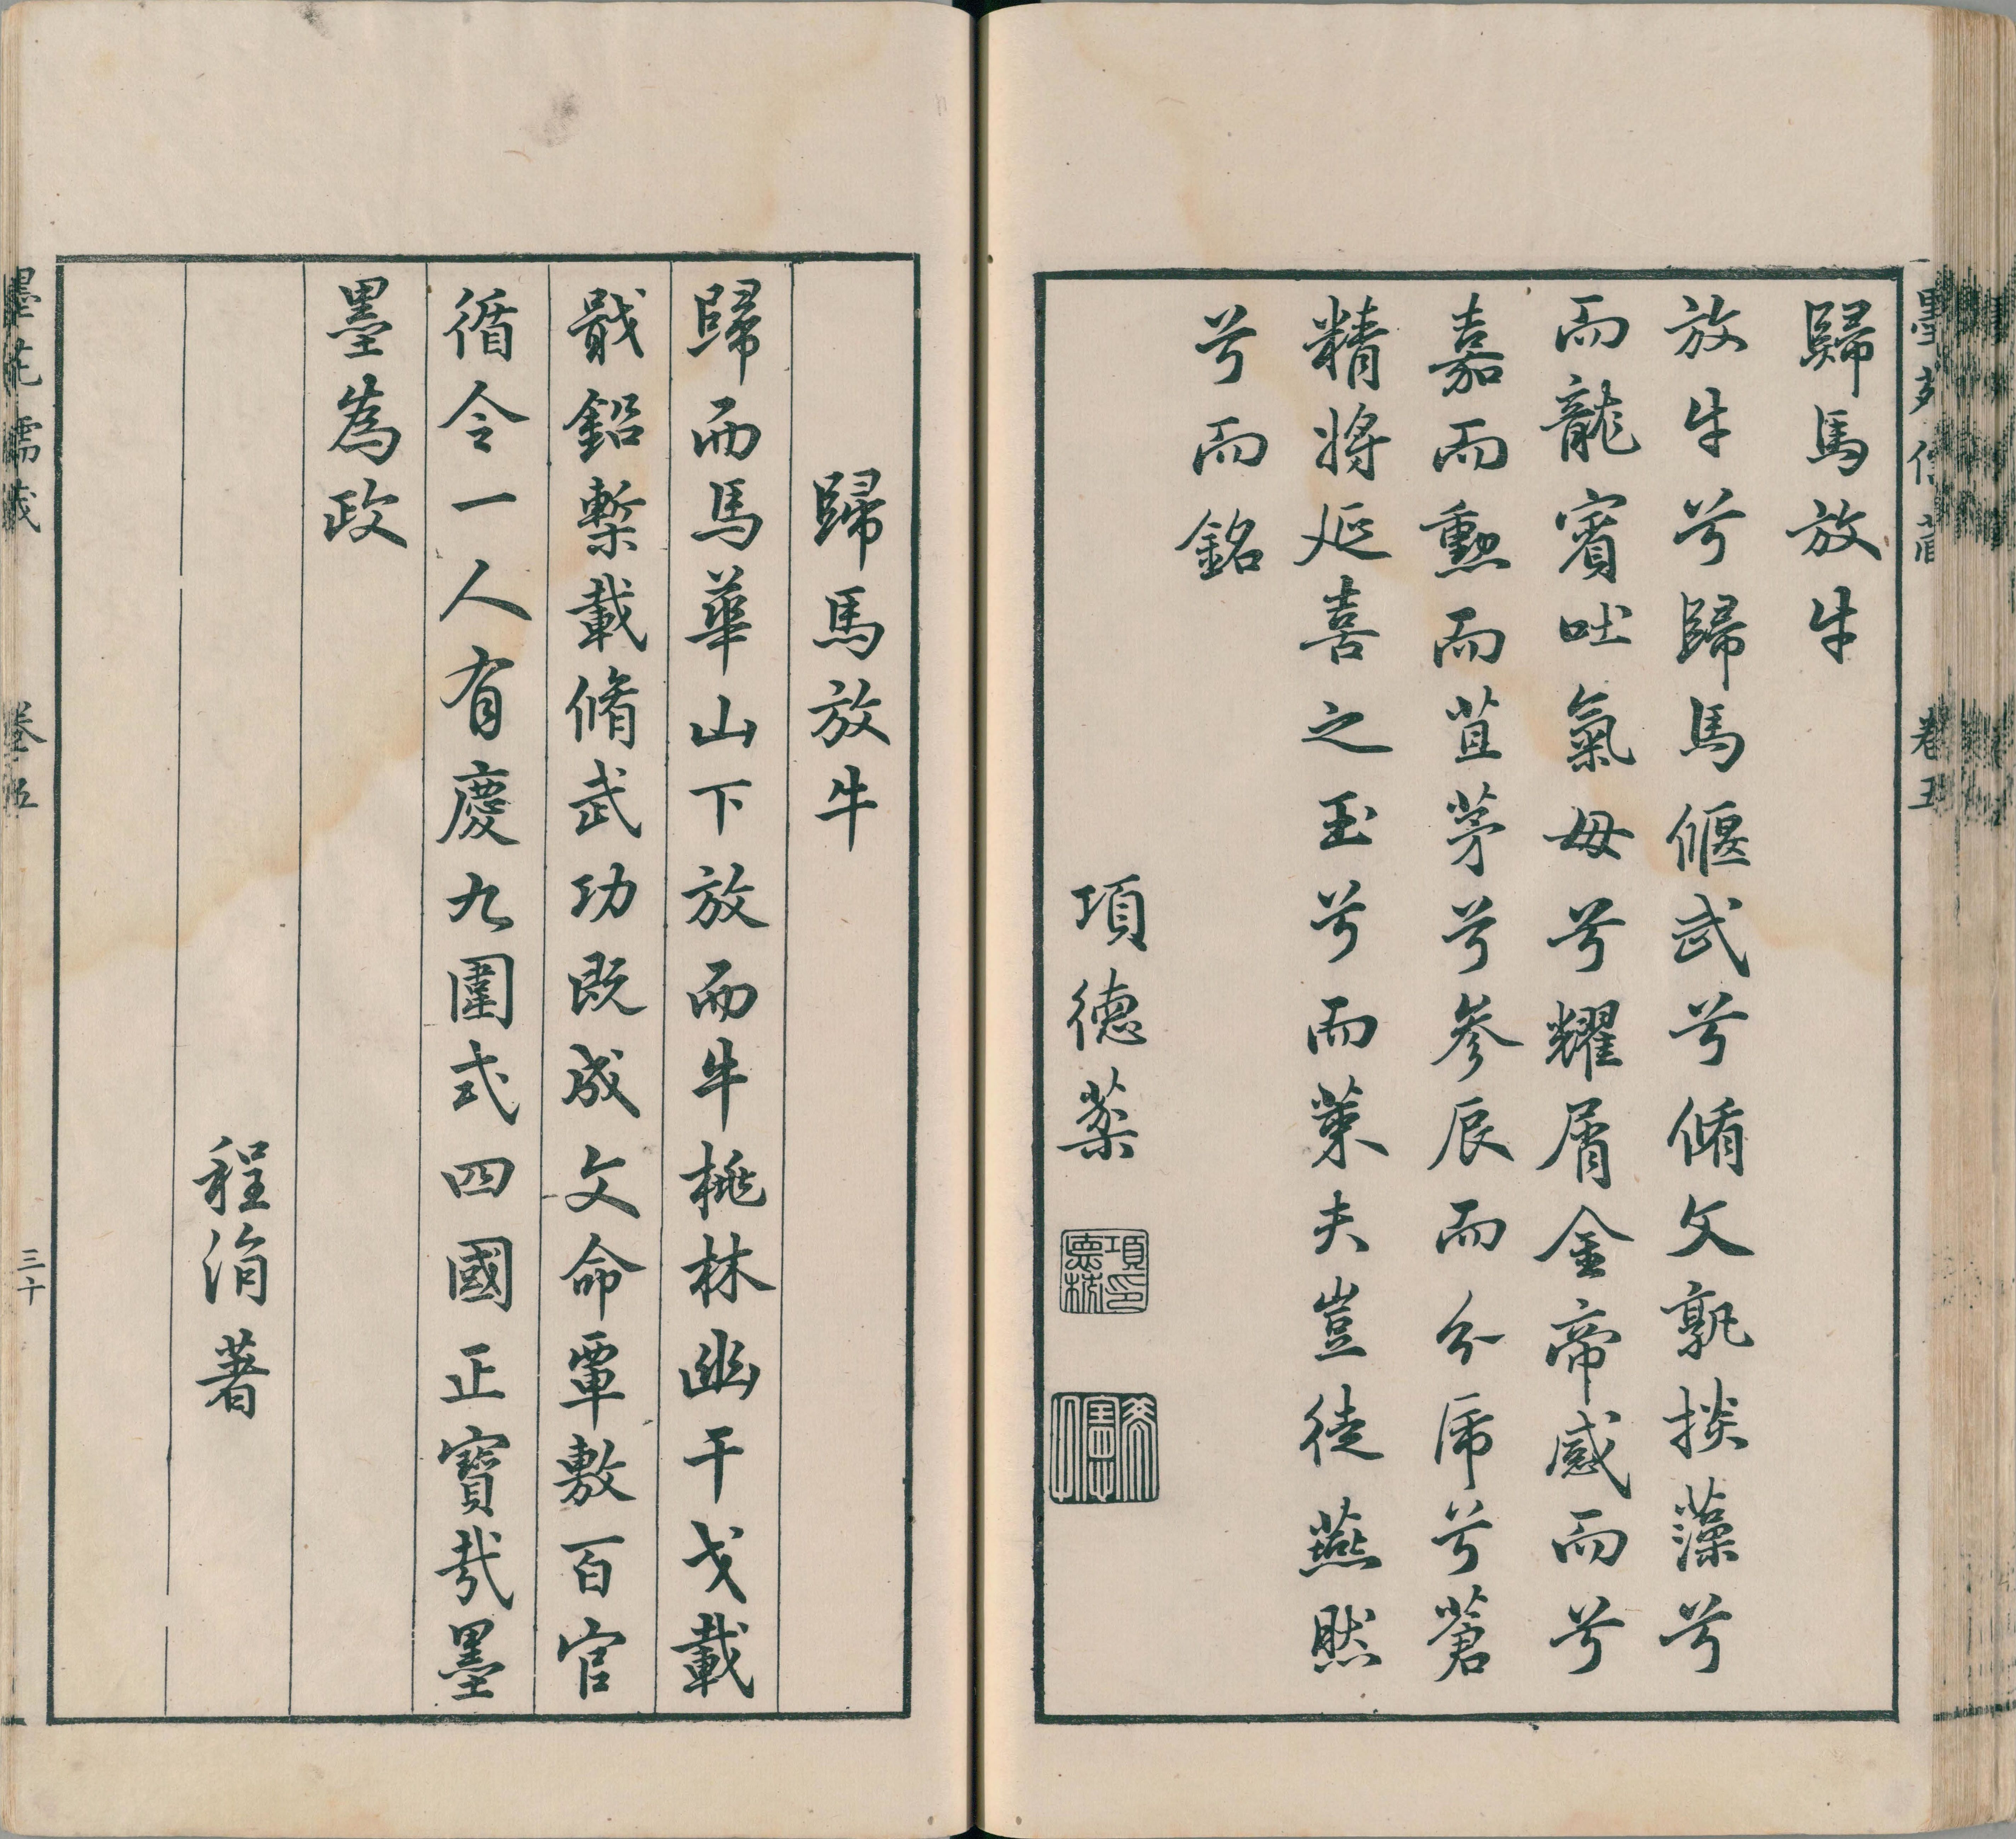 歸馬放牛
放牛兮歸馬偃武兮脩文孰掞藻兮
而龍賓吐氣毋兮耀屑金帝感而兮
嘉而勲而苴茅兮參辰而分庿兮蒼
精將延喜之玉兮而萊夫豈徒燕然
兮而銘
項德棻
歸馬放牛
歸而馬華山下放而牛桃林幽干戈載
戢鉛槧載脩武功既成文命覃敷百官
循令一人有慶九圍式四國正寶哉墨
墨為政
程涓著
卷五
三十